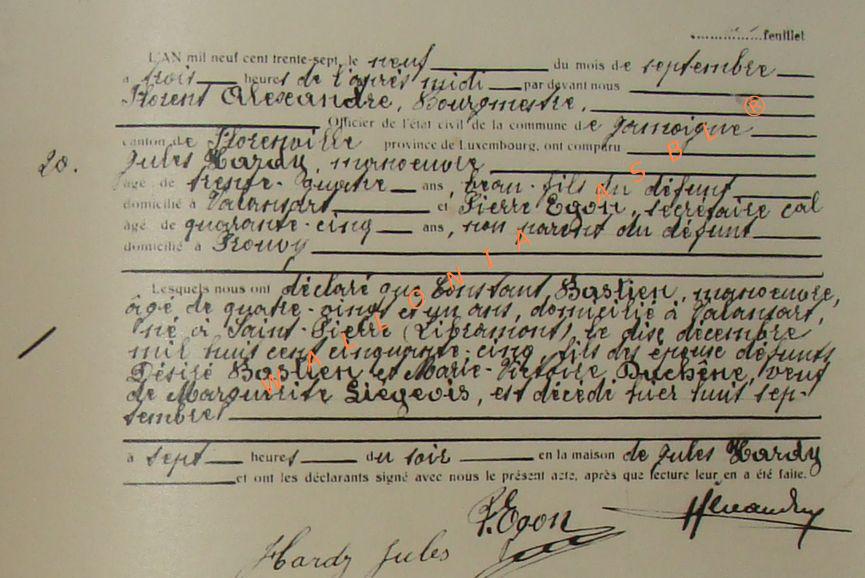 feuillet
L'AN mil neuf cent trente-sept, le neuf du mois de septembre
à trois heures de l'après midi par devant nous
Florent Alexandre, Bourgmestre,
Officier de l'état civil de la commune de Jamoigne
canton de Florenville province de Luxembourg, ont comparu
20. Jules Hardy, manoeuvre
âgé de trente-quatre ans, beau-fils du défunt
domicilié à Valansart et Pierre Egon, secrétaire cal
âgé de quarante-cinq ans, non parent du défunt
domicilié à Prouvy
Lesquels nous ont déclaré que Constant Bastien, manoeuvre,
âgé de quatre-vingt et un ans, domicilié à Valansart,
né à Saint-Pierre (Libramont), le dix décembre
mil huit cent cinquante-cinq, fils des époux défunts
Désiré Bastien et Marie-Victoire Duchêne, veuf
de Marguerite Liégeois, est décédé hier huit sep-
tembre
à sept heures du soir en la maison de Jules Hardy
et ont les déclarants signé avec nous le présent acte, après que lecture leur en a été faite.
P. Egon Alexandre
Hardy Jules
WALLONIA ASBL ®